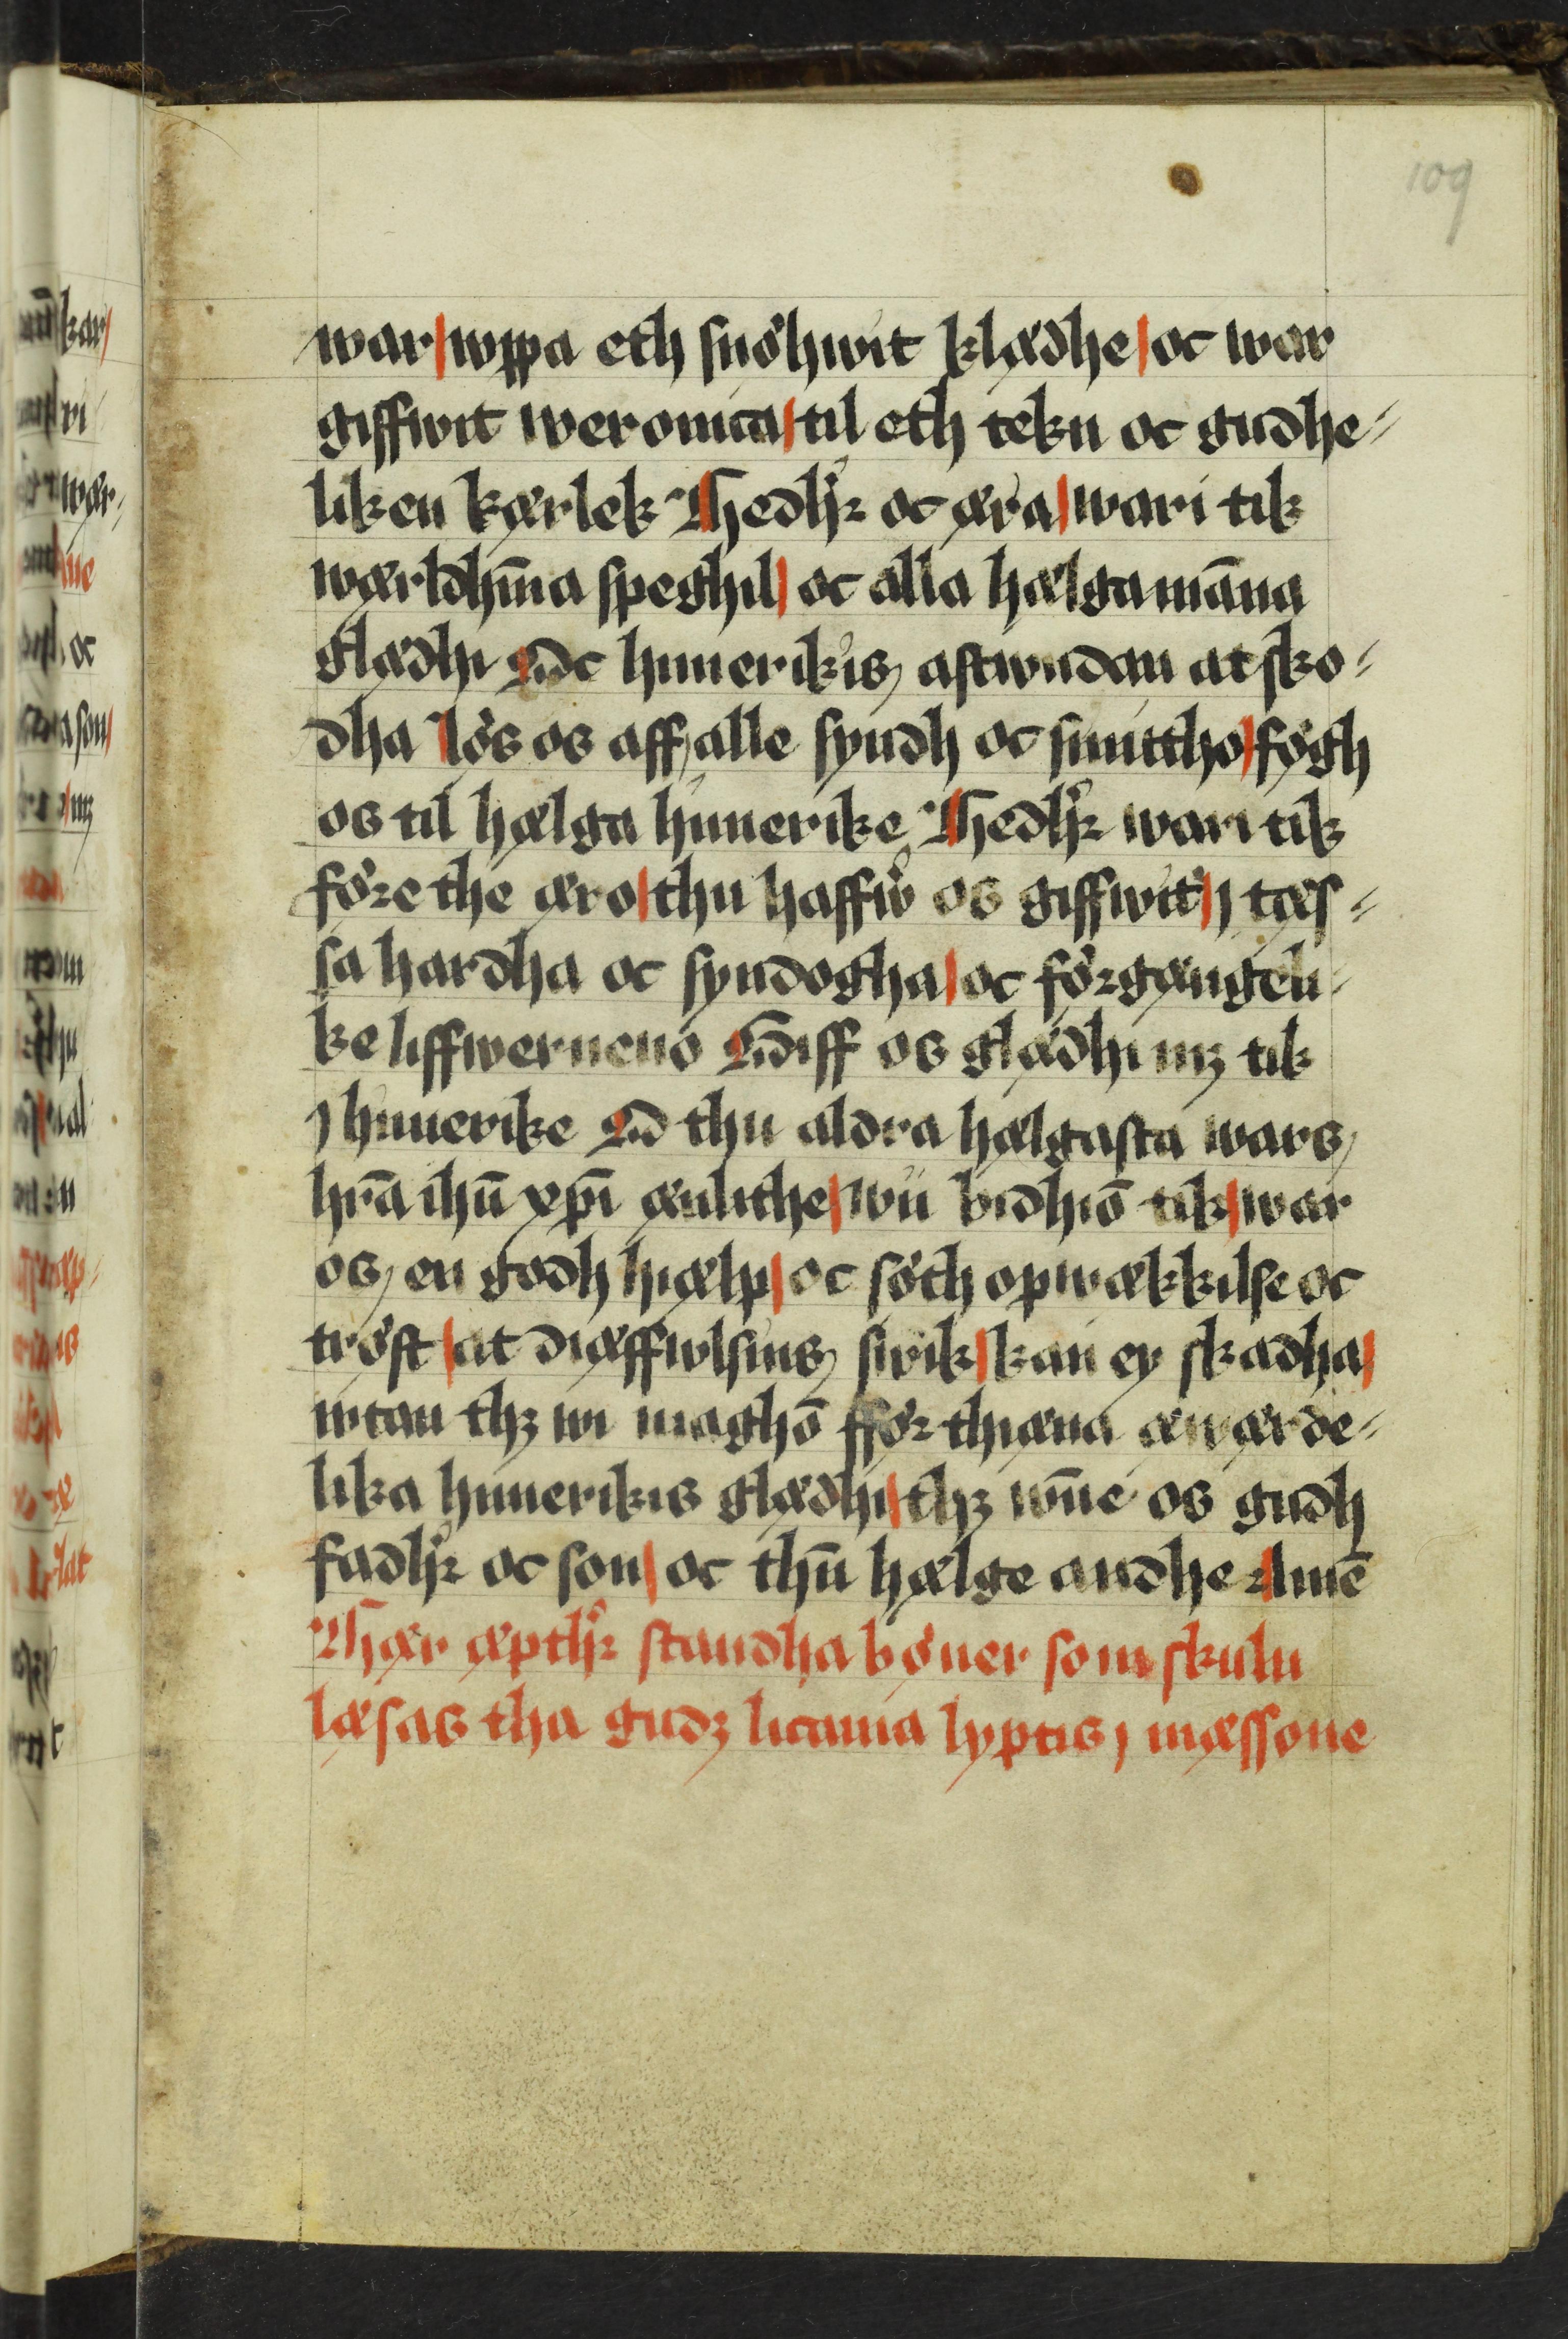 109
war wppa eth snöhwit klædhe oc war
giffwit weronica til eth tekn oc gudhe⸗
liken kærlek Hedhʼr oc æra wari tik
wærldhīna speghil oc alla hælga māna
glædhi Oc himerikis astwndan at sko⸗
dha lös os aff alle syndh oc smittho fögh
os til hælga himerike Hedhʼr wari tik
före the æro thu haffwʼ os giffwit j tæs⸗
sa hardha oc syndogha oc förgængeli⸗
ke liffwerneno Giff os glædhi mʒ tik
j himerike O thu aldra hælgasta wars
hrā ihū xpī ænlithe wii bidhiō tik war
os en godh hiælp oc söth opwækkilse oc
tröst at diæffwlsins swik kan ey skadha
wtan thʒ wi maghō ffor thiæna æwærde⸗
lika himerikis glædhi thʒ wn̄e os gudh
fadhʼr oc son oc thn̄ hælge andhe Amē
Thær æpthʼr standha böner som skulu
læsas tha gudʒ licama lyptis j mæssone
kar
ri
wær⸗
ne
oc
son
mʒ
lat